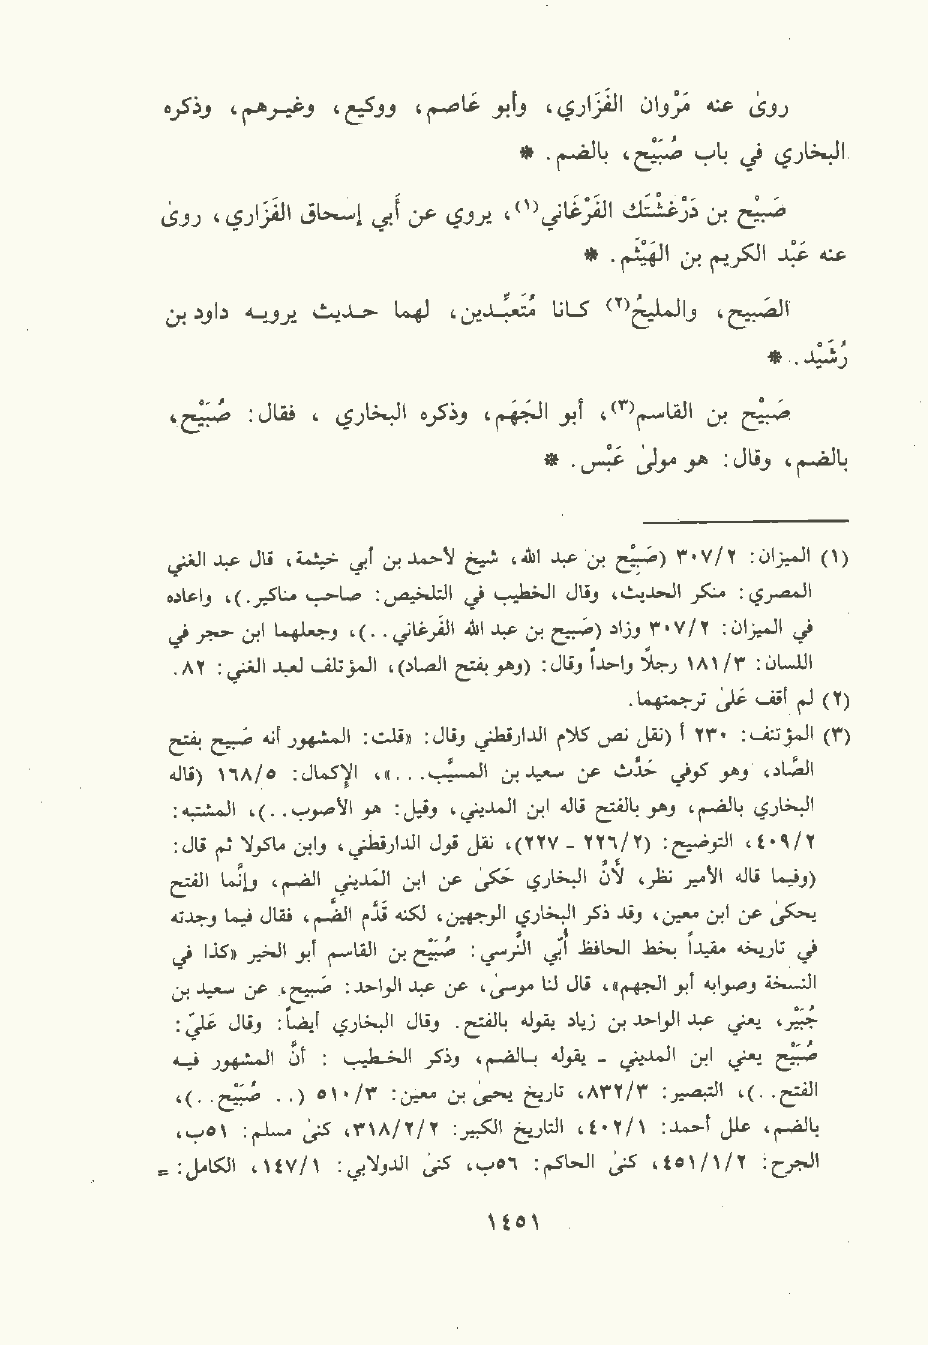 روىٰ عنه مَرْوان الفَزَاري، وأبو عَاصم، ووكيع، وغيـرهم، وذكره
البخاري في باب صُبَيْح، بالضم. *
صَبيْح بن دَرْغشْتَك الفَرْغاني(١)، يروي عن أبي إسحاق الفَزَاري، روىٰ
عنه عَبْد الكريم بن الهَيْثَم. *
الصَبيح، والمليحُ(٢) كـانا مُتَعبِّـدين، لهما حـديث يرويـه داود بن
رُشَيْد. *
صَبيْح بن القاسم(٣)، أبو الجَهَم، وذكره البخاري ، فقال: صُبَيْح،
بالضم، وقال: هو مولىٰ عَبْس. *
(١) الميزان: ٣٠٧/٢ (صَبِيْح بن عبد الله، شيخ لأحمد بن أبي خيثمة، قال عبد الغني
المصري: منكر الحديث، وقال الخطيب في التلخيص: صاحب مناكير.)، واعاده
في الميزان: ٣٠٧/٢ وزاد (صبيح بن عبد الله الفَرغاني..)، وجعلهما ابن حجر في
اللسان: ١٨١/٣ رجلاً واحداً وقال: (وهو بفتح الصاد)، المؤتلف لعبد الغني: ٨٢.
(٢) لم أقف عَلىٰ ترجمتهما.
(٣) المؤتنف: ٢٣٠ أ (نقل نص كلام الدارقطني وقال: «قلت: المشهور أنه صَبيح بفتح
الصَّاد، وهو كوفي حَدَّث عن سعيد بن المسيَّب...»، الإكمال: ١٦٨/٥ (قاله
البخاري بالضم، وهو بالفتح قاله ابن المديني، وقيل: هو الأصوب..)، المشتبه:
٤٠٩/٢، التوضيح: (٢٢٦/٢ - ٢٢٧)، نقل قول الدارقطني، وابن ماكولا ثم قال:
(وفيما قاله الأمير نظر، لأنَّ البخاري حَكىٰ عن ابن المَديني الضم، وإنَّما الفتح
يحكىٰ عن ابن معين، وقد ذكر البخاري الوجهين، لكنه قدَّم الضَّم، فقال فيما وجدته
في تاريخه مقيداً بخط الحافظ أُبَيّ النَّرسي: صُبَيْح بن القاسم أبو الخير «كذا في
النسخة وصوابه أبو الجهم»، قال لنا موسىٰ، عن عبد الواحد: صَبيح، عن سعيد بن
جُبَيْر، يعني عبد الواحد بن زياد يقوله بالفتح. وقال البخاري أيضاً: وقال عَليّ:
صُبَيْح يعني ابن المديني - يقوله بـالضم، وذكر الخـطيب : أنَّ المشهور فيـه
الفتح..)، التبصير: ٨٣٢/٣، تاريخ يحيىٰ بن معين: ٥١٠/٣ (.. صُبَيْح..)،
بالضم، علل أحمد: ٤٠٢/١، التاريخ الكبير: ٣١٨/٢/٢، كنىٰ مسلم: ٥١ب،
الجرح: ٤٥١/١/٢، كنىٰ الحاكم: ٥٦ب، كنىٰ الدولابي: ١٤٧/١، الكامل: =
١٤٥١